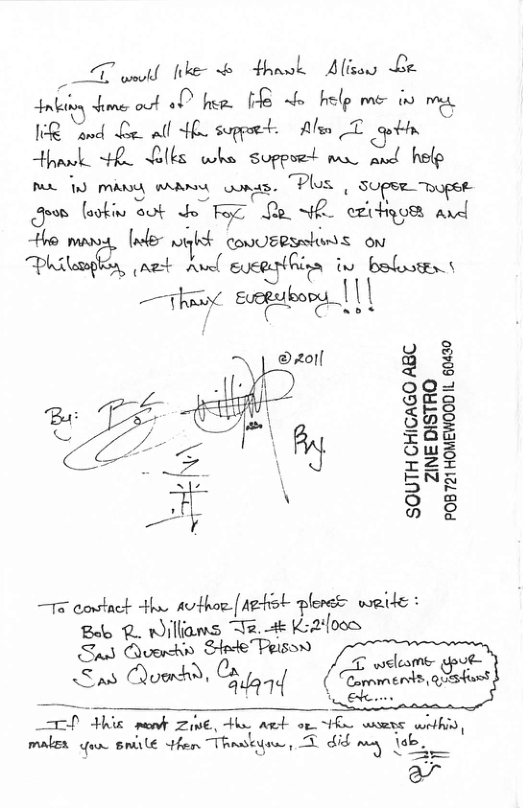 I would like to thank Alison for
taking time out of her life to help me in my
life and for all the support. Also I gotta
thank the folks who support me and help
me in many many ways. Plus, super duper
good lookin out to Fox for the critiques and
the many late night conversations on
Philosophy, art and everything in between!
Thanx everybody!!!
© 2011
By:
Williams
SOUTH CHICAGO ABC
ZINE DISTRO
POB 721 HOMEWOOD IL 60430
To contact the author/artist please write:
Bob R. Williams Jr. # K-24000
San Quentin State Prison
San Quentin, CA
94974
I welcome your
comments, questions
etc....
If this zine, the art or the words within,
makes you smile then Thankyou, I did my job.